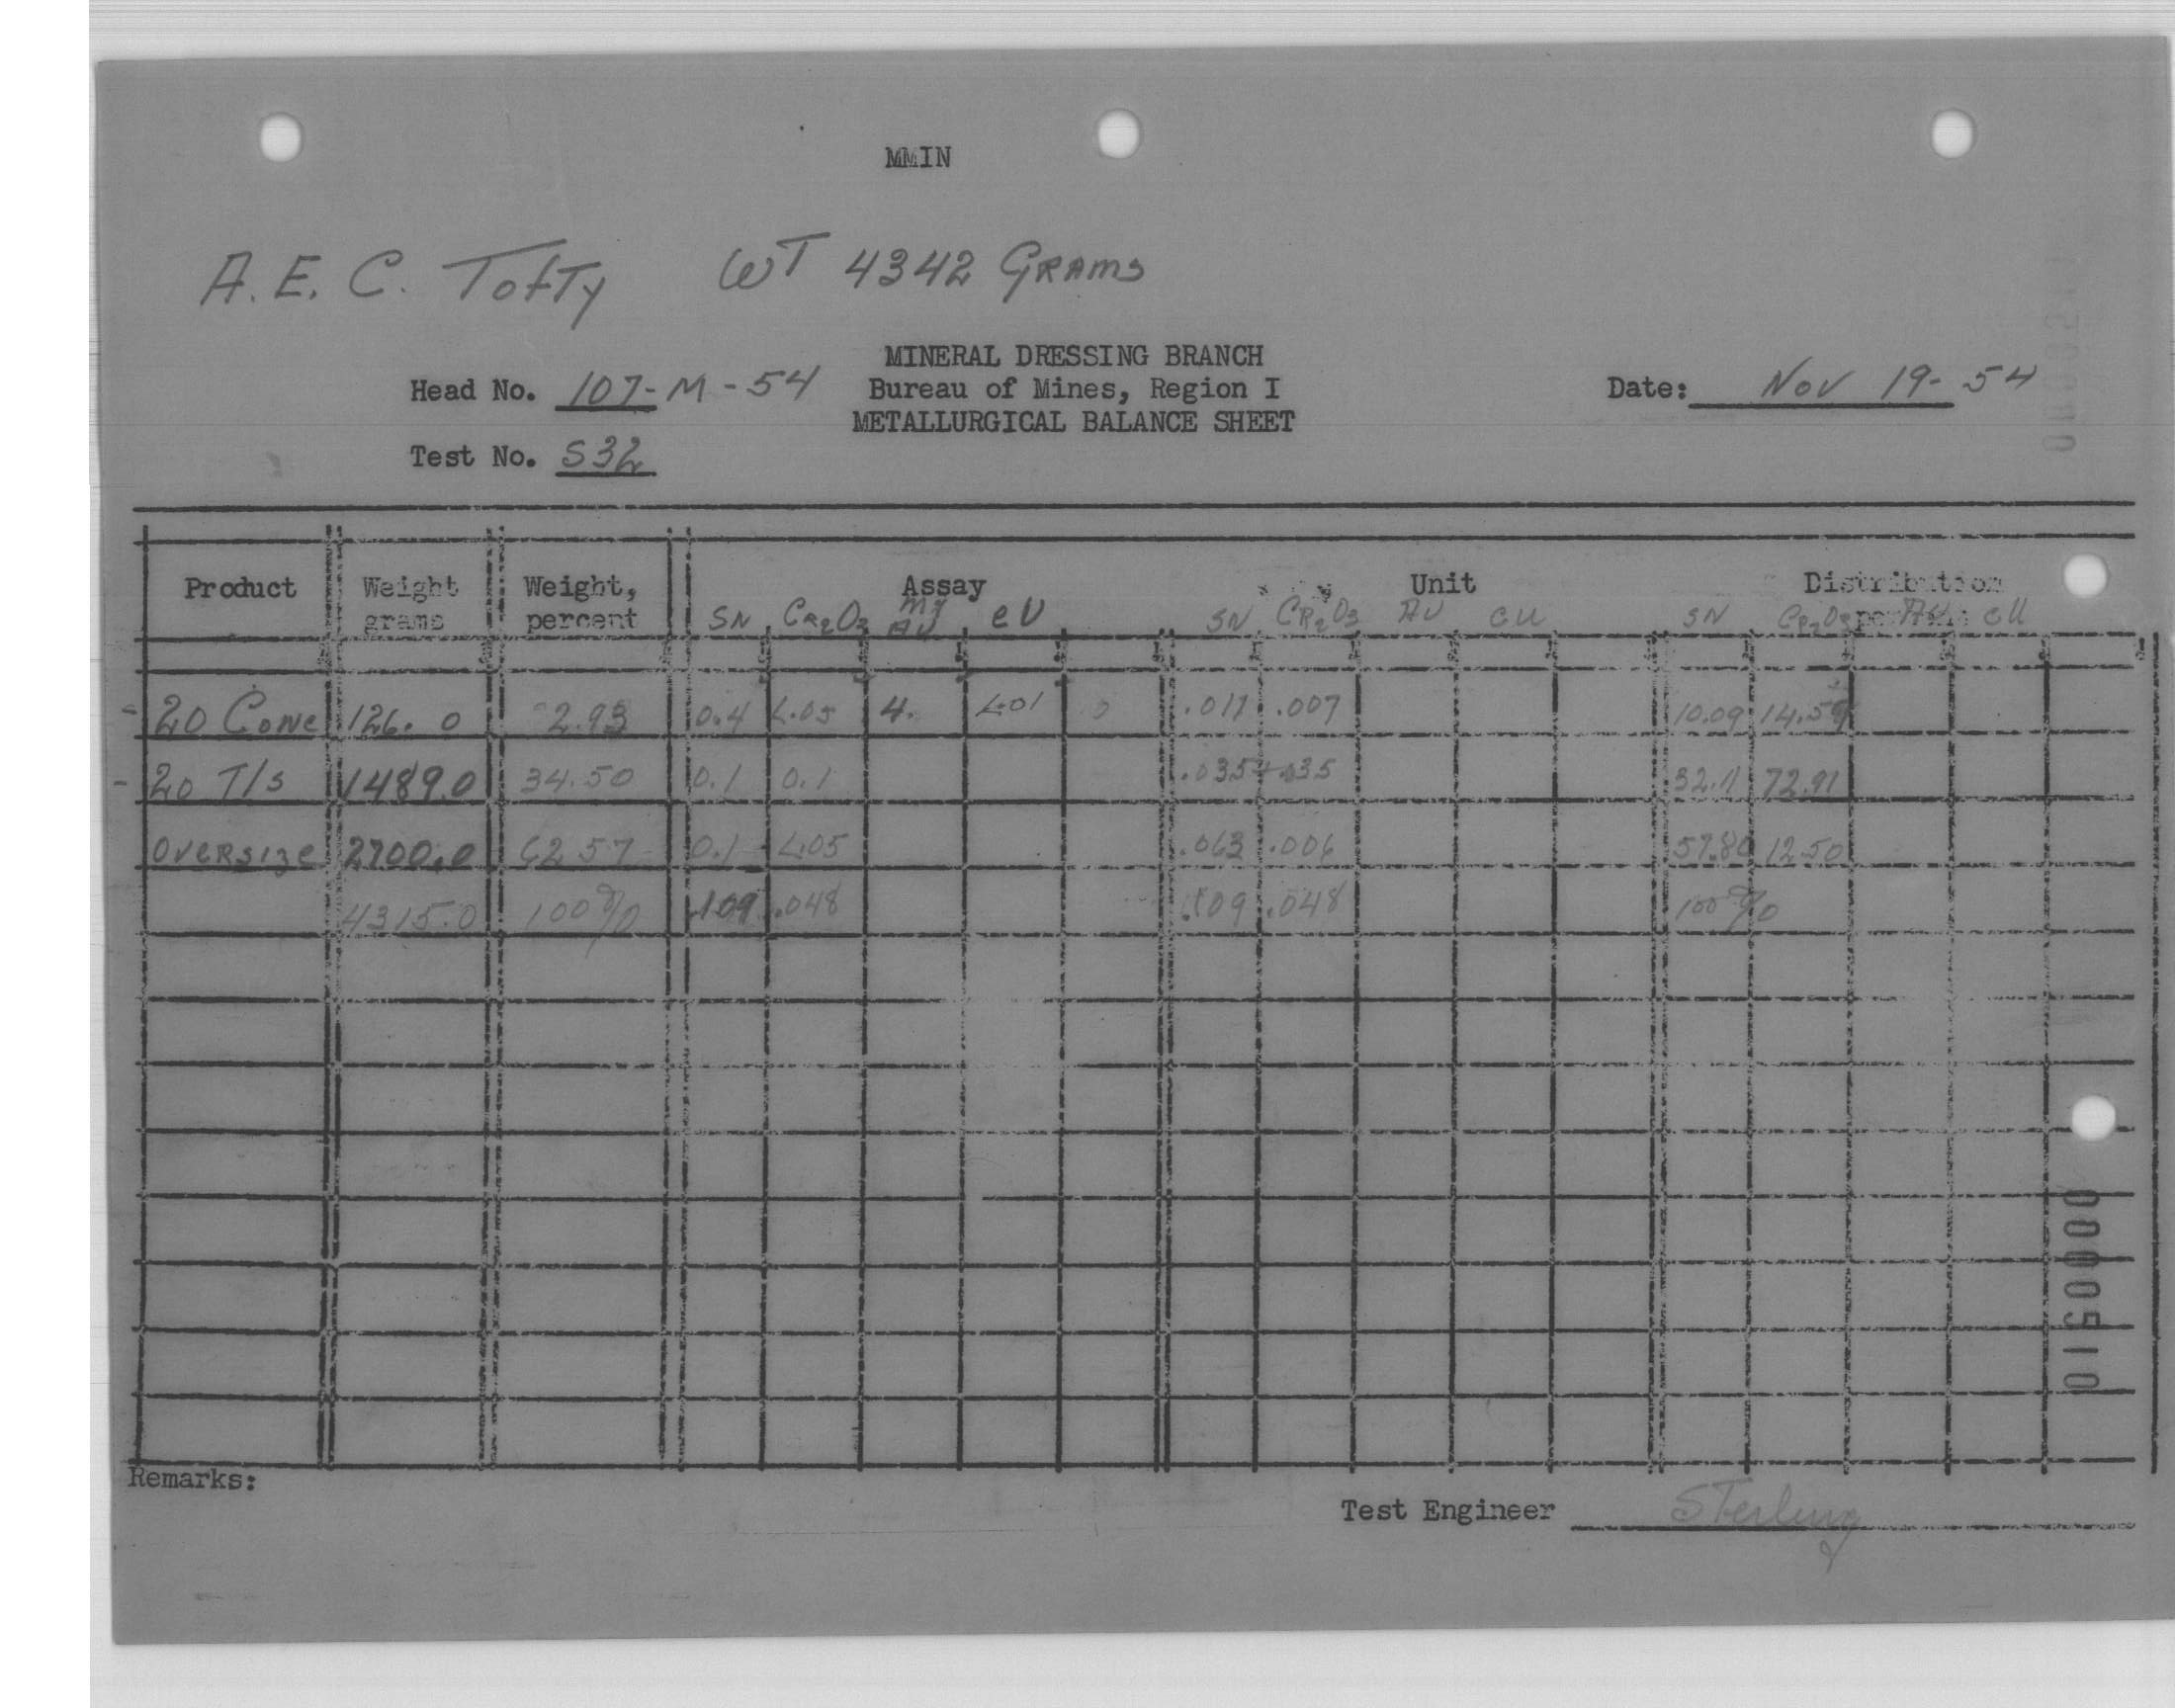 MMIN
A.E.C. Tofty WT 4342 GRAMS
MINERAL DRESSING BRANCH
Head No. 107-M-54 Bureau of Mines, Region I Date: Nov 19-54
METALLURGICAL BALANCE SHEET
Test No. S32
Product Weight grams Weight, percent Assay Unit Distribution
SN Cr2O3 Mg AU eU SN CR2O3 AU eU SN CR2O3 AU eU
-20 Conc 126.0 2.93 0.4 <.05 4. <.01 .011 .007 10.09 14.59
-20 T/s 1489.0 34.50 0.1 0.1 .035 .035 32.11 72.91
OVERSIZE 2700.0 62.57 0.1 <.05 .063 .006 57.80 12.50
4315.0 100% .109 .048 .109 .048 100%
0000510
Remarks:
Test Engineer Sterling